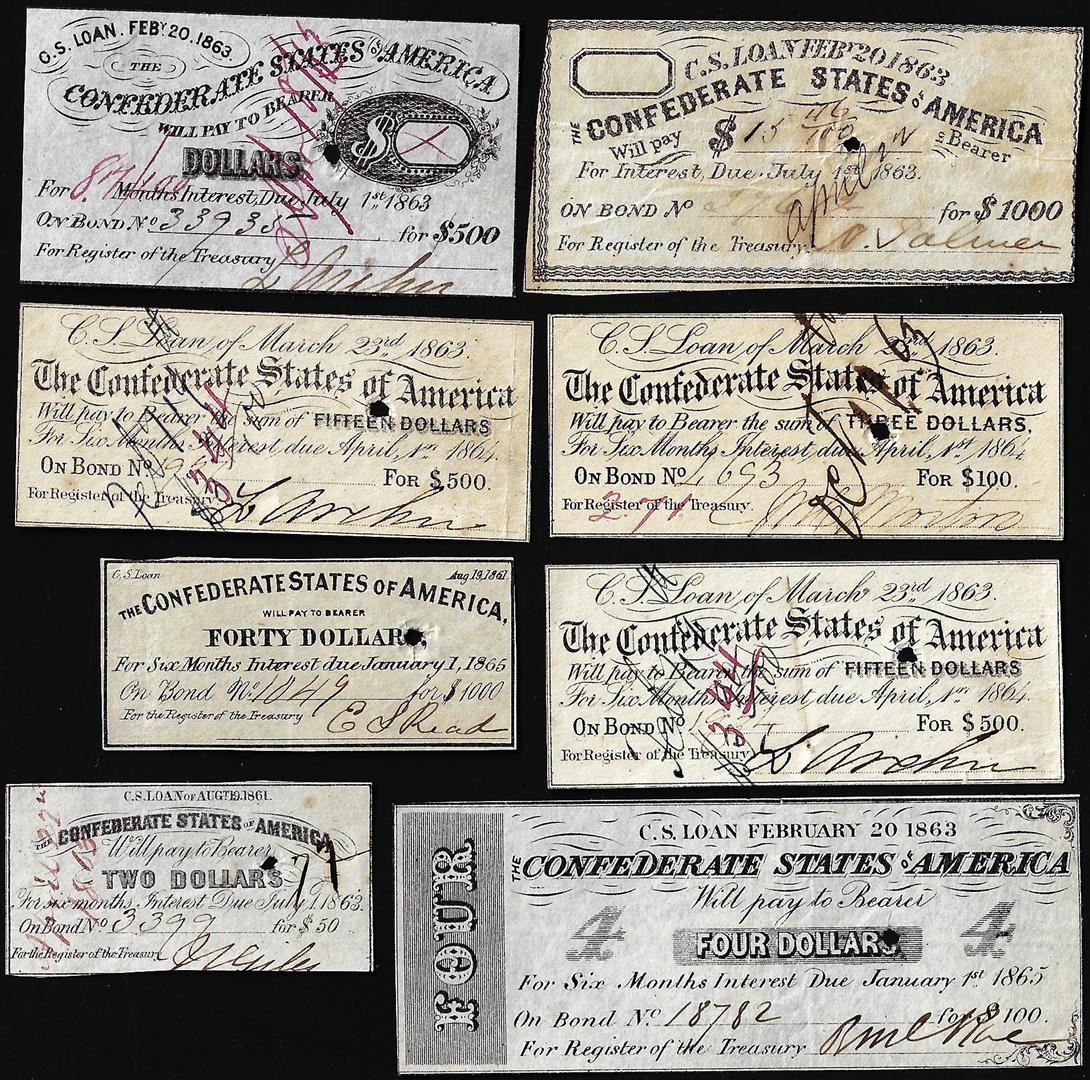 C.S. LOAN. FEBY. 20. 1863.
THE
CONFEDERATE STATES OF AMERICA
WILL PAY TO BEARER
DOLLARS
$
For Months Interest, Due July 1st. 1863
ON BOND No. 33935 for $500
For Register of the Treasury
C.S. LOAN FEBY 20 1863
THE CONFEDERATE STATES OF AMERICA
Will pay $ 15 46/100 to Bearer
For Interest, Due, July 1st 1863.
april
ON BOND No for $1000
For Register of the Treasury
C. S. Loan of March 23rd 1863.
The Confederate States of America
Will pay to Bearer the sum of FIFTEEN DOLLARS
For Six Months Interest due April, 1st 1864.
ON BOND No FOR $500.
For Register of the Treasury.
C. S. Loan of March 23rd 1863.
The Confederate States of America
Will pay to Bearer the sum of THREE DOLLARS,
For Six Months Interest, due April, 1st 1864
ON BOND No. 1693 FOR $100.
For Register of the Treasury.
Oct
C.S. Loan Aug. 19, 1861.
THE CONFEDERATE STATES OF AMERICA,
WILL PAY TO BEARER
FORTY DOLLARS,
For Six Months Interest due January 1, 1865
On Bond No. 1049 for $1000
For the Register of the Treasury E S Read
C. S. Loan of March 23rd 1863.
The Confederate States of America
Will pay to Bearer the sum of FIFTEEN DOLLARS
For Six Months Interest due April, 1st 1864.
ON BOND No FOR $500.
For Register of the Treasury
C.S. LOAN OF AUGT. 19. 1861.
THE CONFEDERATE STATES OF AMERICA
Will pay to Bearer
TWO DOLLARS
For six months Interest Due July 1, 1863.
On Bond No. 3399 for $50
For the Register of the Treasury
FOUR
C.S. LOAN FEBRUARY 20 1863
THE CONFEDERATE STATES OF AMERICA
Will pay to Bearer
4 FOUR DOLLARS 4
For Six Months Interest Due January 1st 1865
On Bond No. 18782 for $100.
For Register of the Treasury